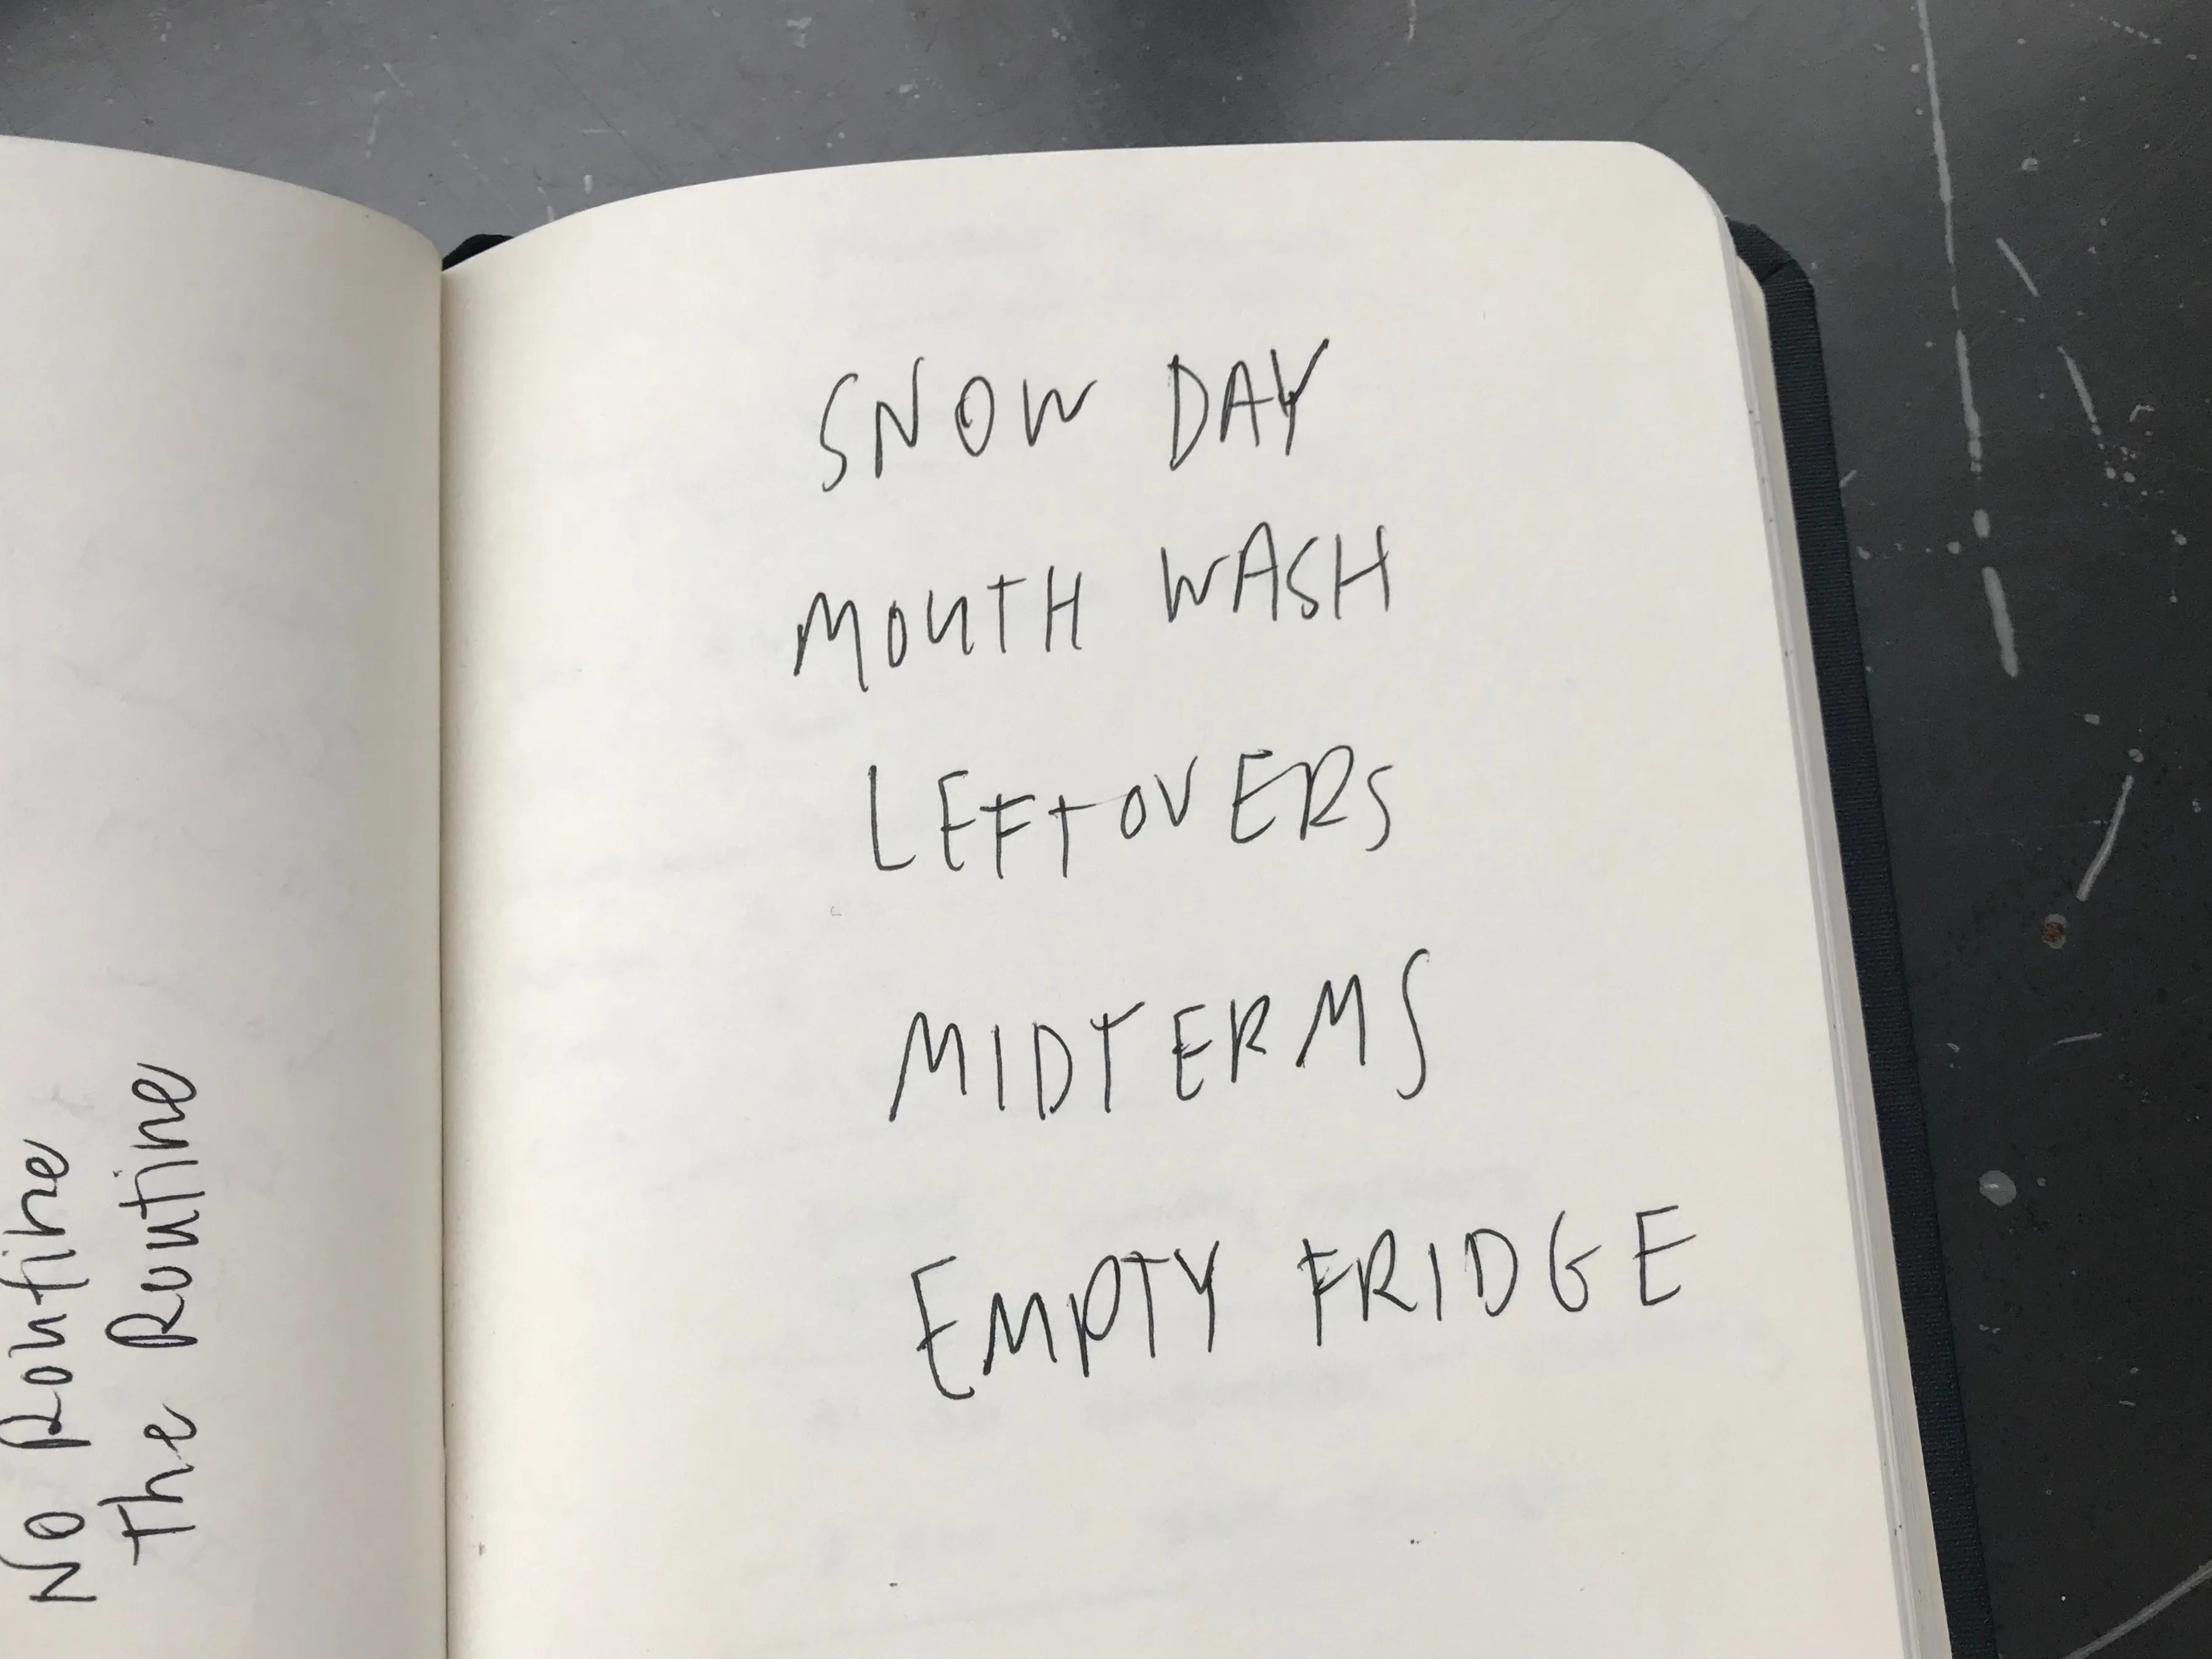 No Routine
The Routine
SNOW DAY
MOUTH WASH
LEFTOVERS
MIDTERMS
EMPTY FRIDGE